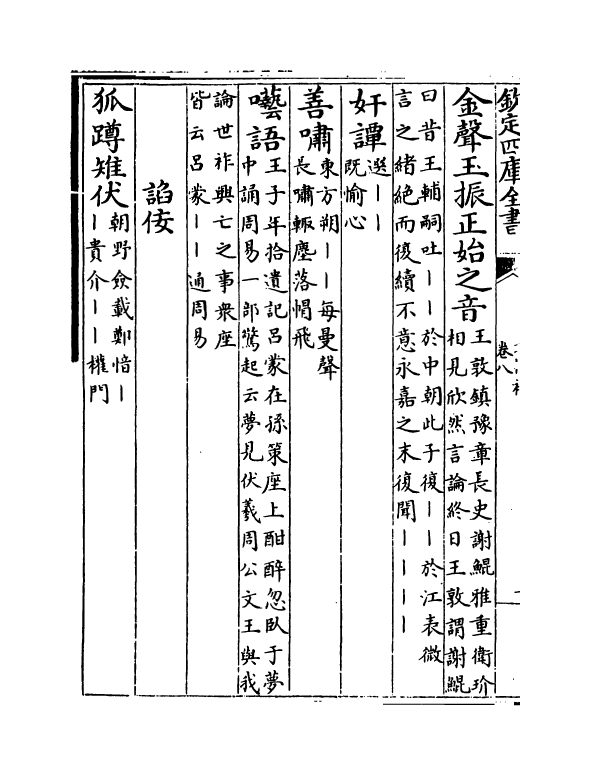 欽定四庫全書
卷八
金聲玉振正始之音王敦鎮豫章長史謝鯤雅重衛玠
相見欣然言論終日王敦謂謝鯤
曰昔王輔嗣吐丨丨於中朝此子復丨丨於江表微
言之緒絶而復續不意永嘉之末復聞丨丨丨丨
奸譚選丨丨
既愉心
善嘯東方朔丨丨每曼聲
長嘯輒塵落帽飛
囈語王子年拾遺記呂蒙在孫策座上酣醉忽臥于夢
中誦周易一部驚起云夢見伏羲周公文王與我
論世祚興亡之事衆座
皆云呂蒙丨丨通周易
諂佞
狐蹲雉伏朝野僉載鄭愔丨
丨貴介丨丨權門